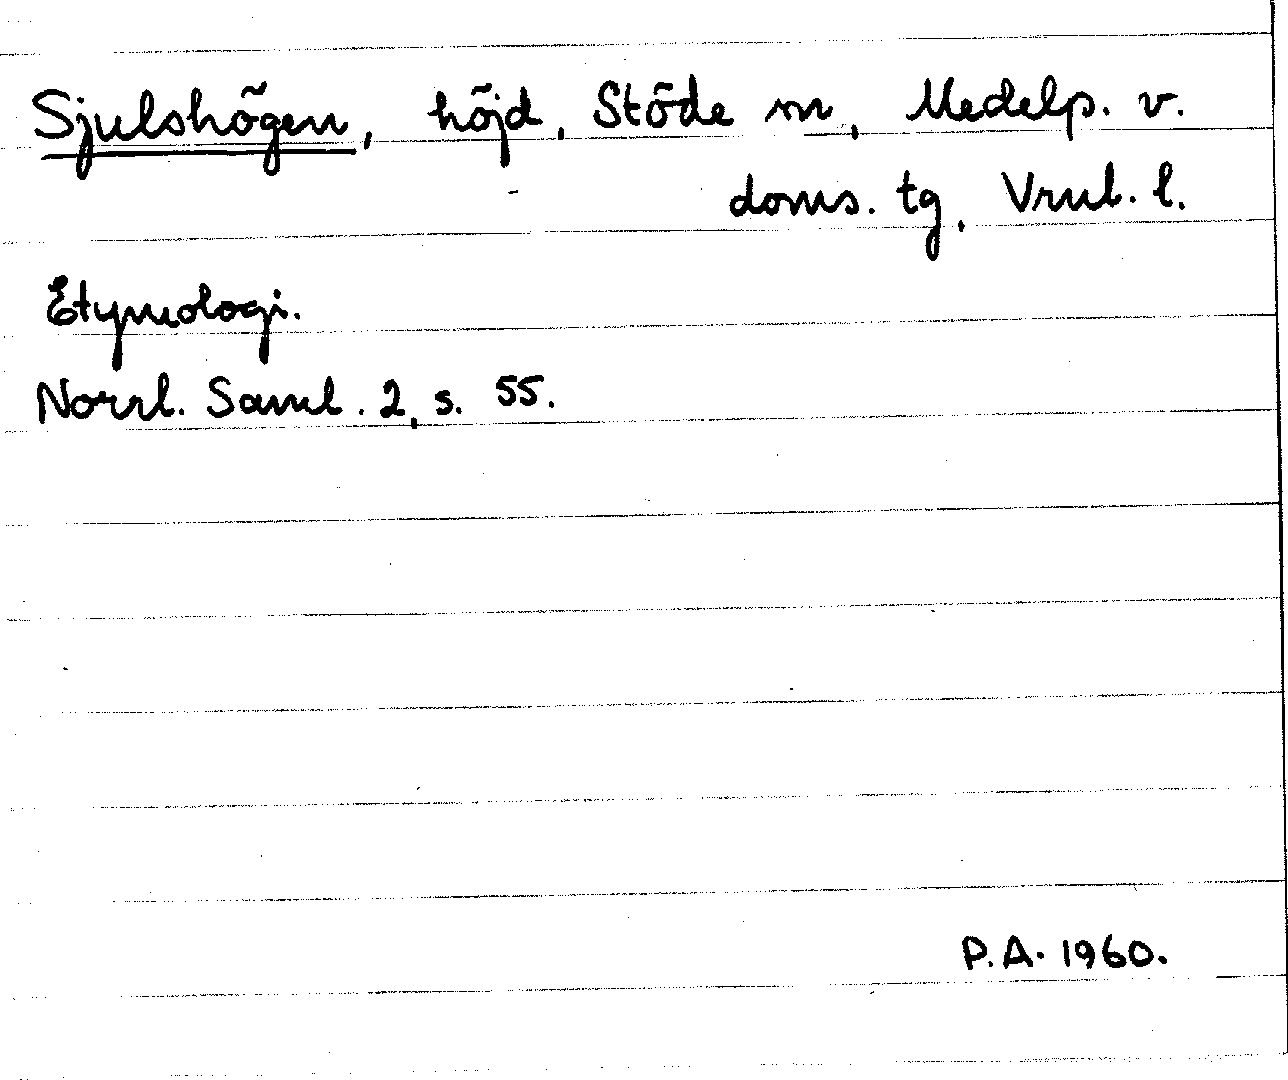 Sjulshögen, höjd, Stöde sn, Medelp. v.
doms. tg, Vrnl. l.
Etymologi.
Norrl. Saml. 2, s. 55.
P.A. 1960.